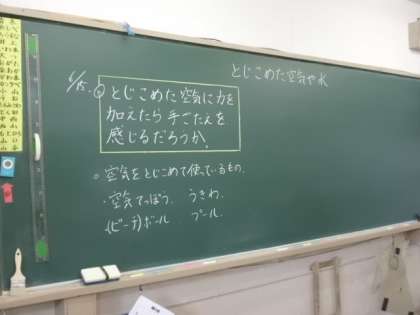 とじこめた空気や水
6/15. Q とじこめた空気に力を
加えたら手ごたえを
感じるだろうか。
○空気をとじこめて使っているもの.
・空気てっぽう. うきわ.
(ビーチ)ボール プール.